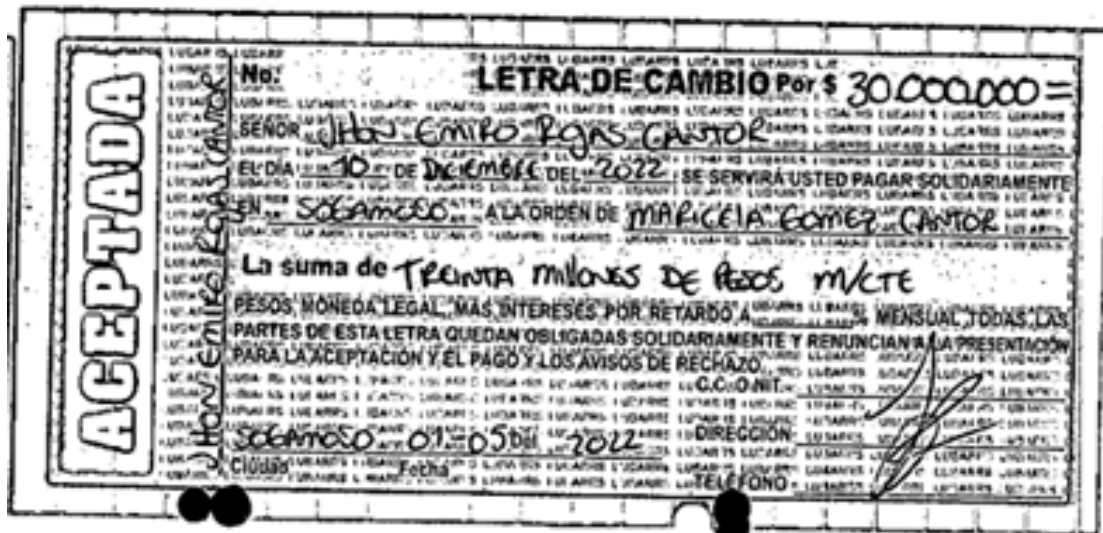 ACEPTADA
JHON EMIRO ROJAS CANTOR
No. LETRA DE CAMBIO Por $ 30.000.000=
SEÑOR JHON EMIRO ROJAS CANTOR
EL DÍA 10 DE DICIEMBRE DEL 2022 SE SERVIRÁ USTED PAGAR SOLIDARIAMENTE
EN SOGAMOSO A LA ORDEN DE MARICELA GOMEZ CANTOR
La suma de TREINTA MILLONES DE PESOS M/CTE
PESOS MONEDA LEGAL, MAS INTERESES POR RETARDO A % MENSUAL, TODAS LAS
PARTES DE ESTA LETRA QUEDAN OBLIGADAS SOLIDARIAMENTE Y RENUNCIAN A LA PRESENTACIÓN
PARA LA ACEPTACIÓN Y EL PAGO Y LOS AVISOS DE RECHAZO.
C.C. O NIT.
SOGAMOSO 01-05 Del 2022 DIRECCIÓN
Ciudad Fecha
TELÉFONO